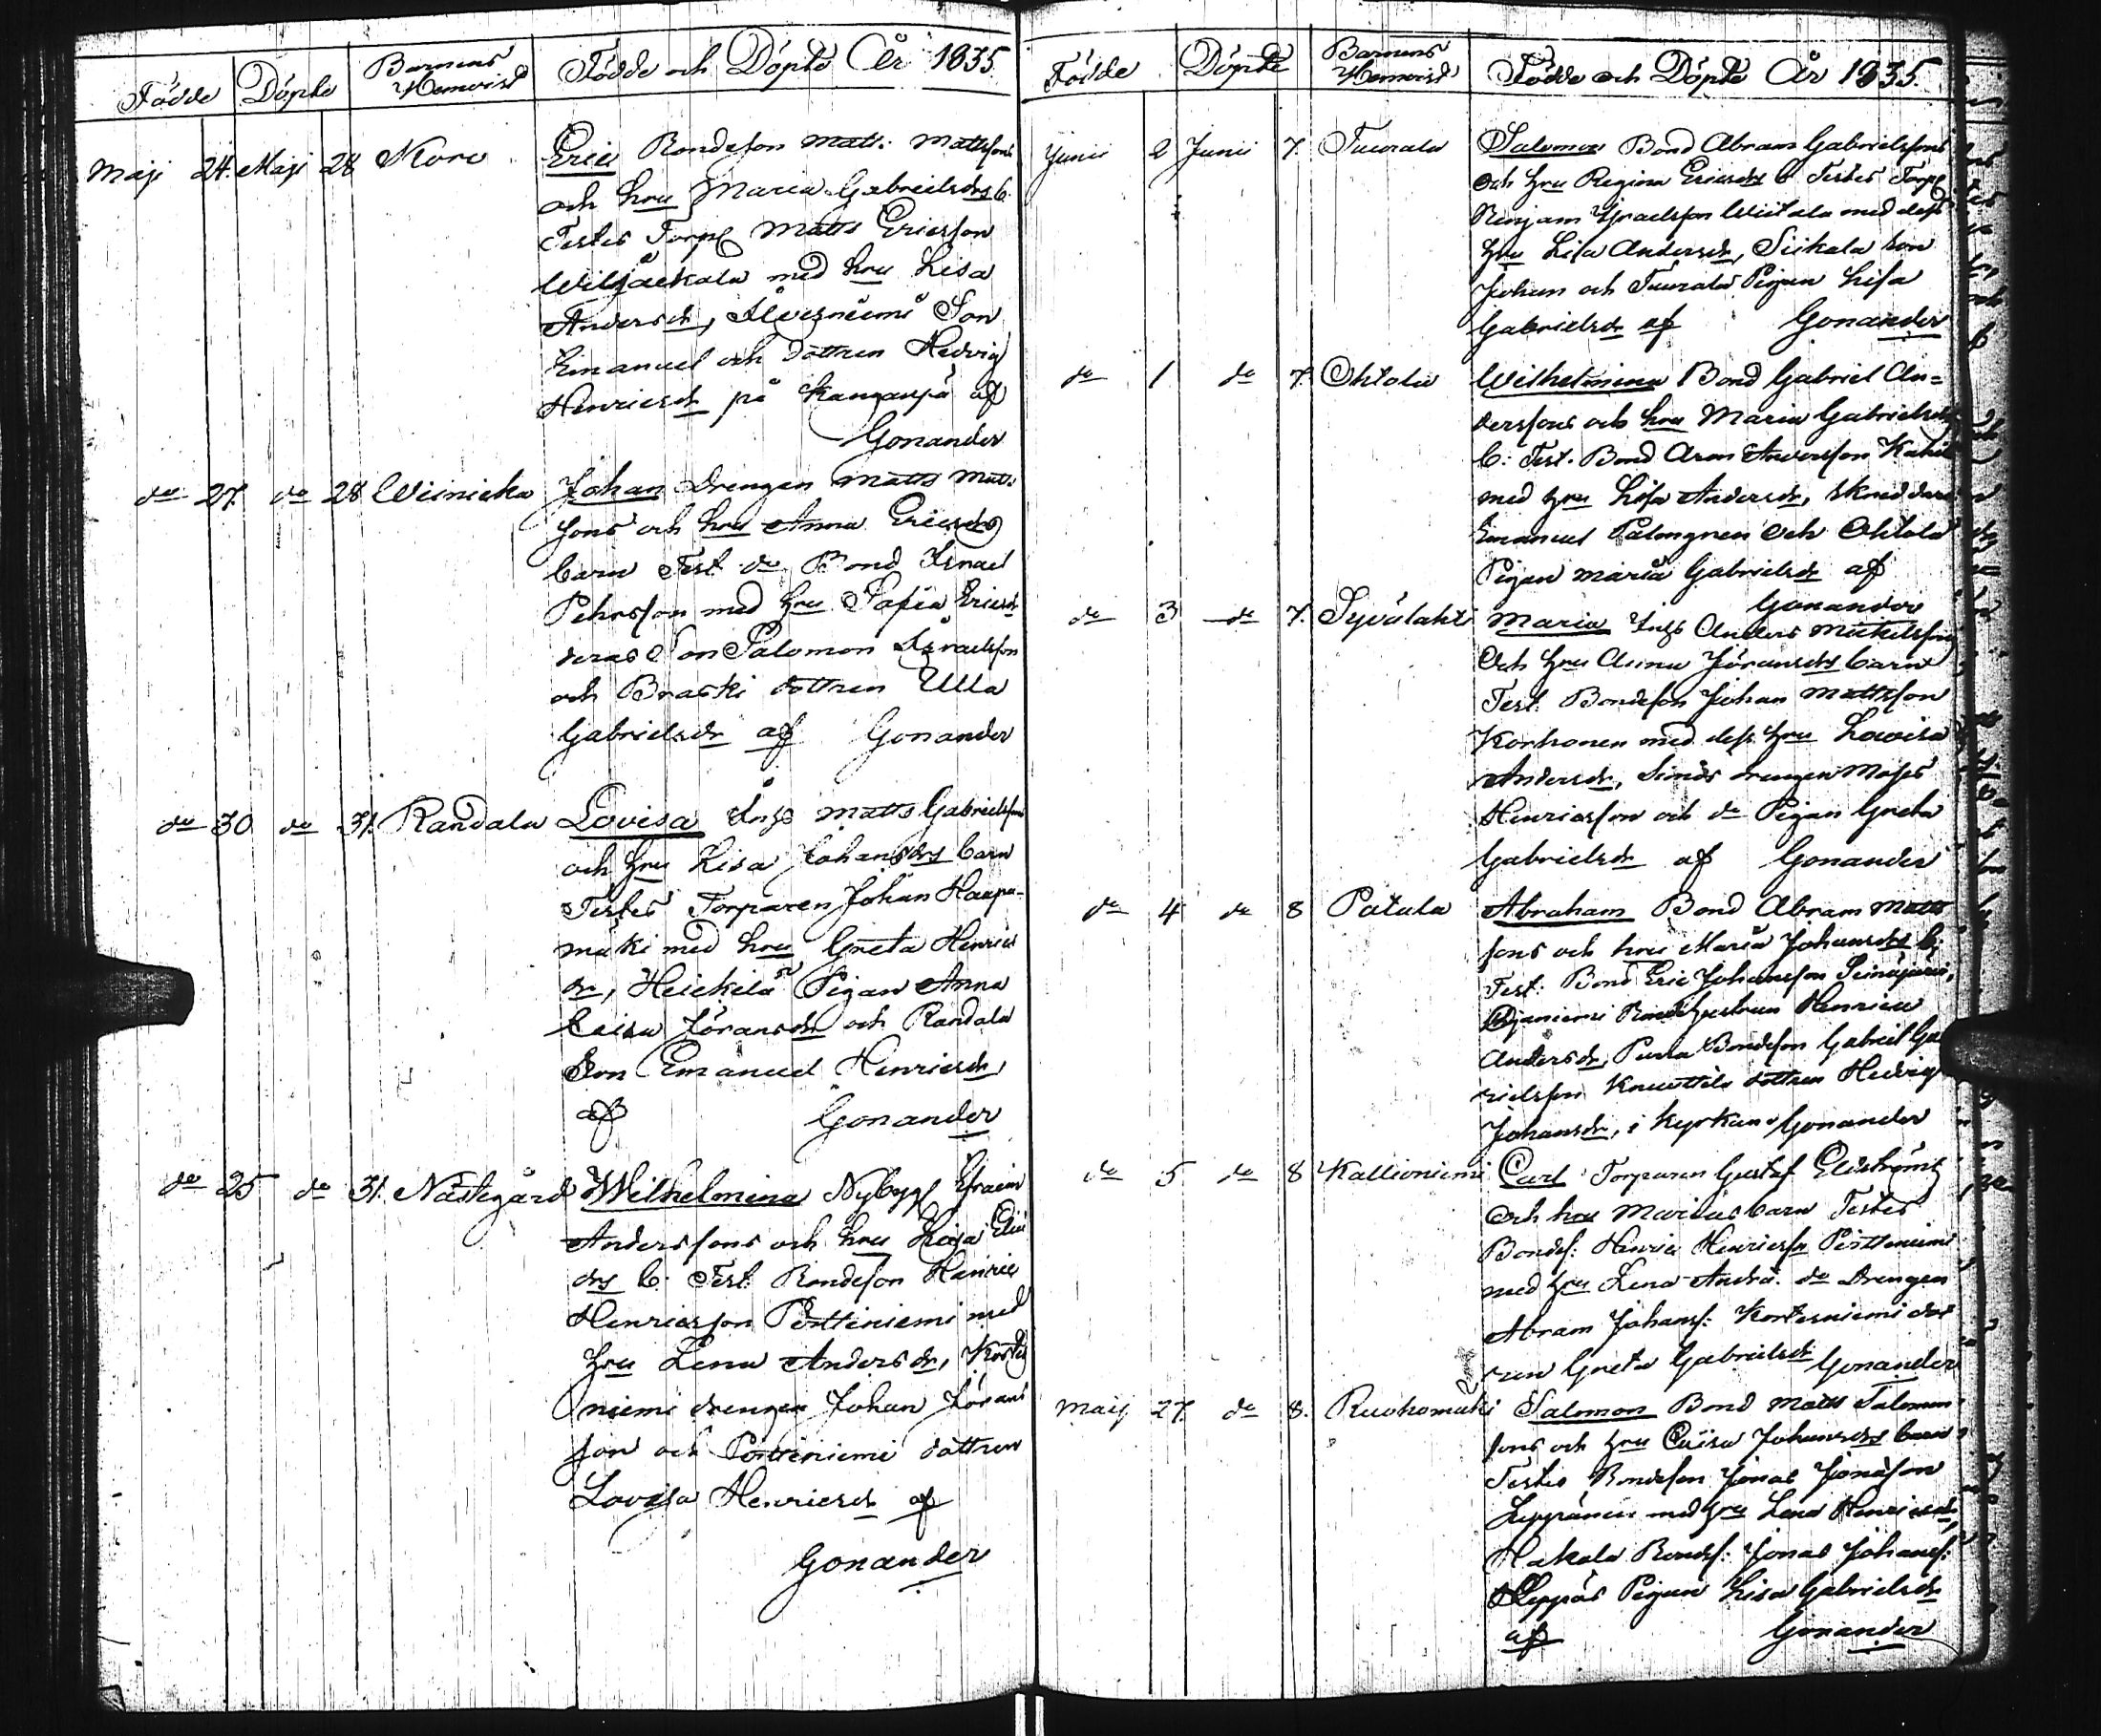 Födde Döpte Barnens Hemvist Födde och Döpte År 1835
Maji 24. Maji 28 Kore Eric Bondeson Matts Mattssons
och hru Maria Gabrielsdrs b.
Testes Torp Matts Ericsson
med hru Lisa
Andersdr, Son
Emanuel och dottren Hedvig
Henricsdr på af
Gonander
do 27. do 28 Johan Drengen Matts Matts
sons och hru Anna Ericsdrs
barn Test do Bond Israel
Pehrsson med hru Ericsdr
deras Son Salomon Israelsson
och Braski dottren Ulla
Gabrielsdr af Gonander
do 30 do 31. Randala Lovisa Inhs Matts Gabrielssons
och hru Lisa Johansdrs barn
Testes Torparen Johan Haapa-
mäki med hru Greta Henrics
dr, Heickilä Pigan Anna
Caisa Jöransdr och Randala
Son Emanuel Henricsdr,
af Gonander
do 25 do 31. Nästegård Wilhelmina Nybygg Efraim
Anderssons och hru
drs b. Test. Bondeson Henric
Henricsson Pörttiniemi med
hru Lena Andersdr, Kortes
niemi drengen Johan Jörans
son och Pörttiniemi dottren
Lovisa Henricsdr af
Gonander
Födde Döpte Barnens Hemvist Födde och Döpte År 1835.
Junii 2 Junii 7. Tuurala Salomon Bond Abram Gabrielssons
och hru Regina Ericsdrs b Testes Torp
Benjam Israelsson Wiitala med dess
hru Lisa Andersdr, Siikala Son
Johan och Tuurala Pigan Lisa
Gabrielsdr af Gonander
do 1 do 7. Ohtola Wilhelmina Bond Gabriel An=
derssons och hru Maria Gabrielsdrs
b: Test. Bond Aron Andersson
med hru Lisa Andersdr, Skreddare
Emanuel Palmgren och Ohtola
Pigan Maria Gabrielsdr af
Gonander
do 3 do 7. Syvälahti Maria Inhs Anders Michelssons
och hru Anna Jöransdrs barn
Test. Bondeson Johan Mattsson
Korhonen med dess hru Lovisa
Andersdr, drengen Moses
Henricsson och do Pigan Greta
Gabrielsdr af Gonander
do 4 do 8 Patala Abraham Bond Abram Matts
sons och hru Maria Johansdrs b.
Test. Bond Eric Johansson Seinäjärvi,
Henrica
Andersdr, Bondeson Gabriel Gab
rielsson Knuuttila dottren Hedvig
Johansdr, i Kyrkan Gonander
do 5 do 8 Kallioniemi Carl Torparen Gustaf
och hru Marias barn Testes
Bondes: Henric Henricssn Pörttiniemi
med hru Lena do Drengen
Abram Johanss: Kortesniemi dot
tren Greta Gabrielsdr Gonander
Maij 27. do 8. Ruohomäki Salomon Bond Matts Salomon
sons och hru Caisa Johansdrs barn
Testes Bondeson Jonas Jonasson
med hru Lena Henricsdr,
Hakala Bondes: Jonas Johanss:
Pigan Lisa Gabrielsdr
af Gonander